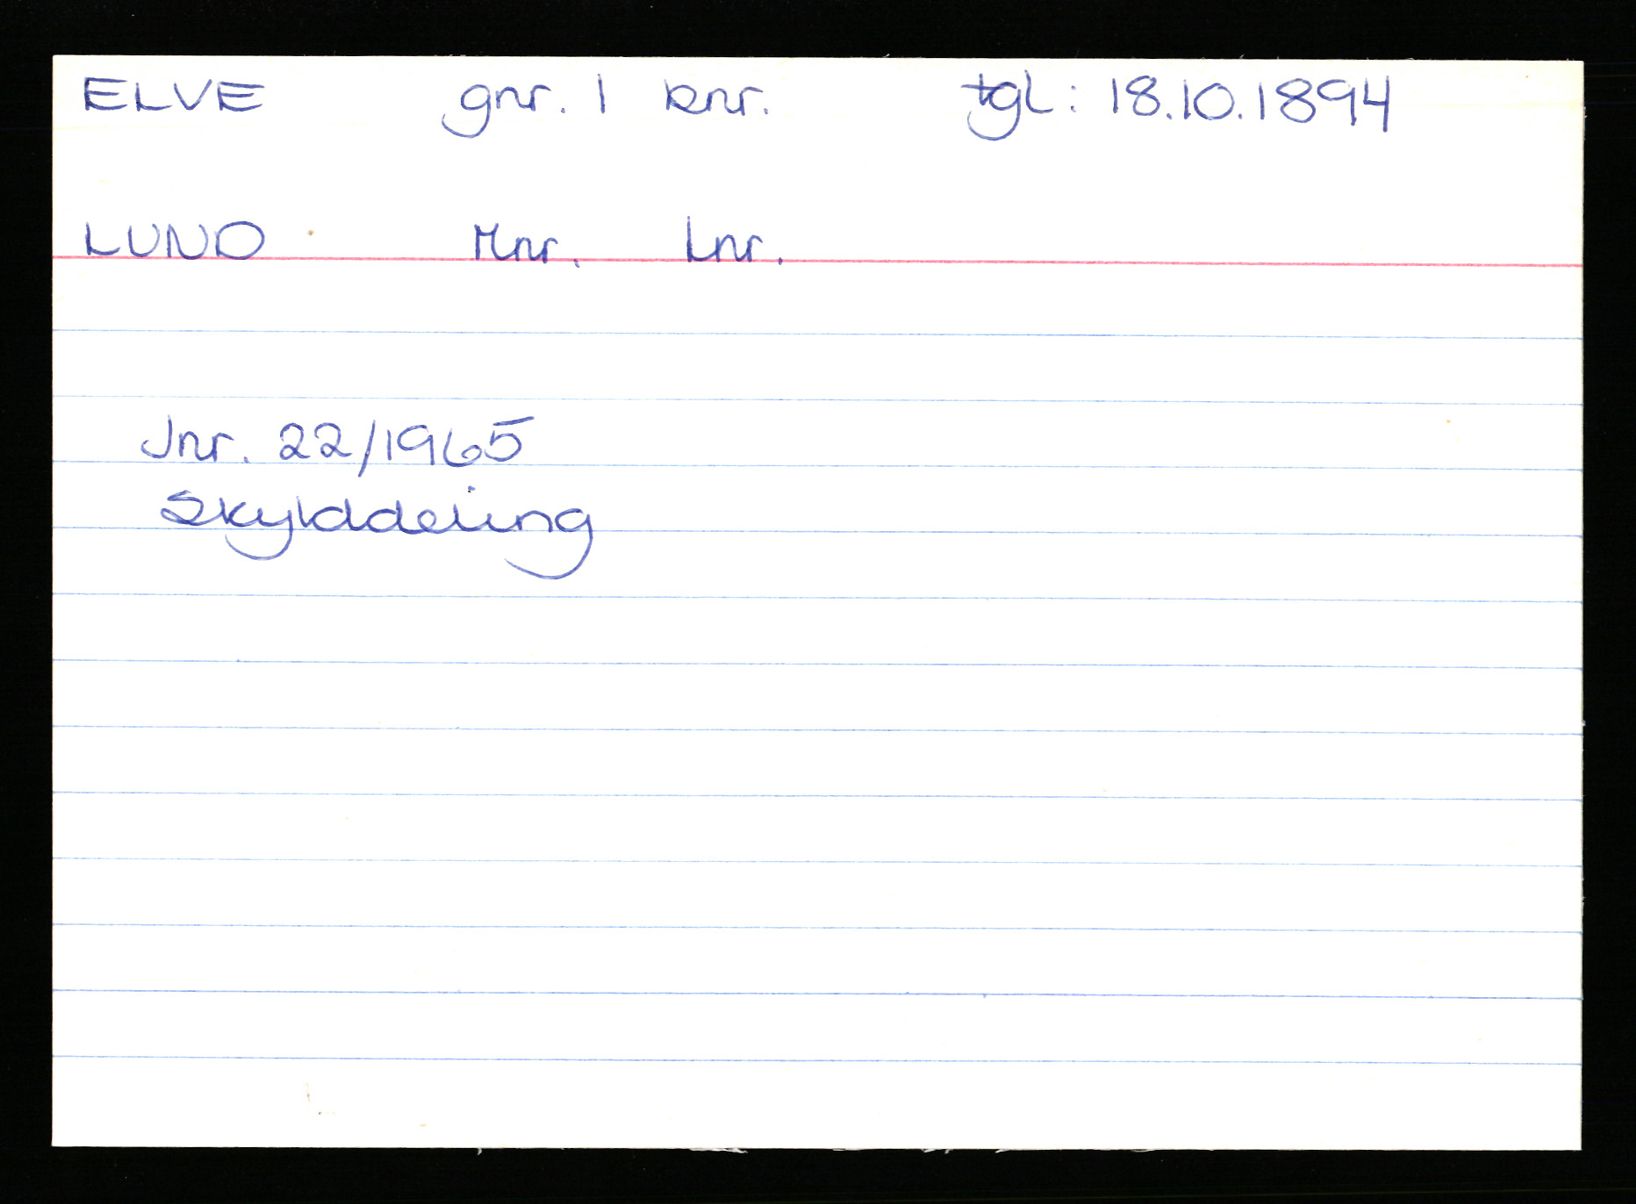 ELVE gnr. 1 bnr. tgl: 18.10.1894
LUND Mnr. Lnr.
Jnr. 22/1965
Skylddeling